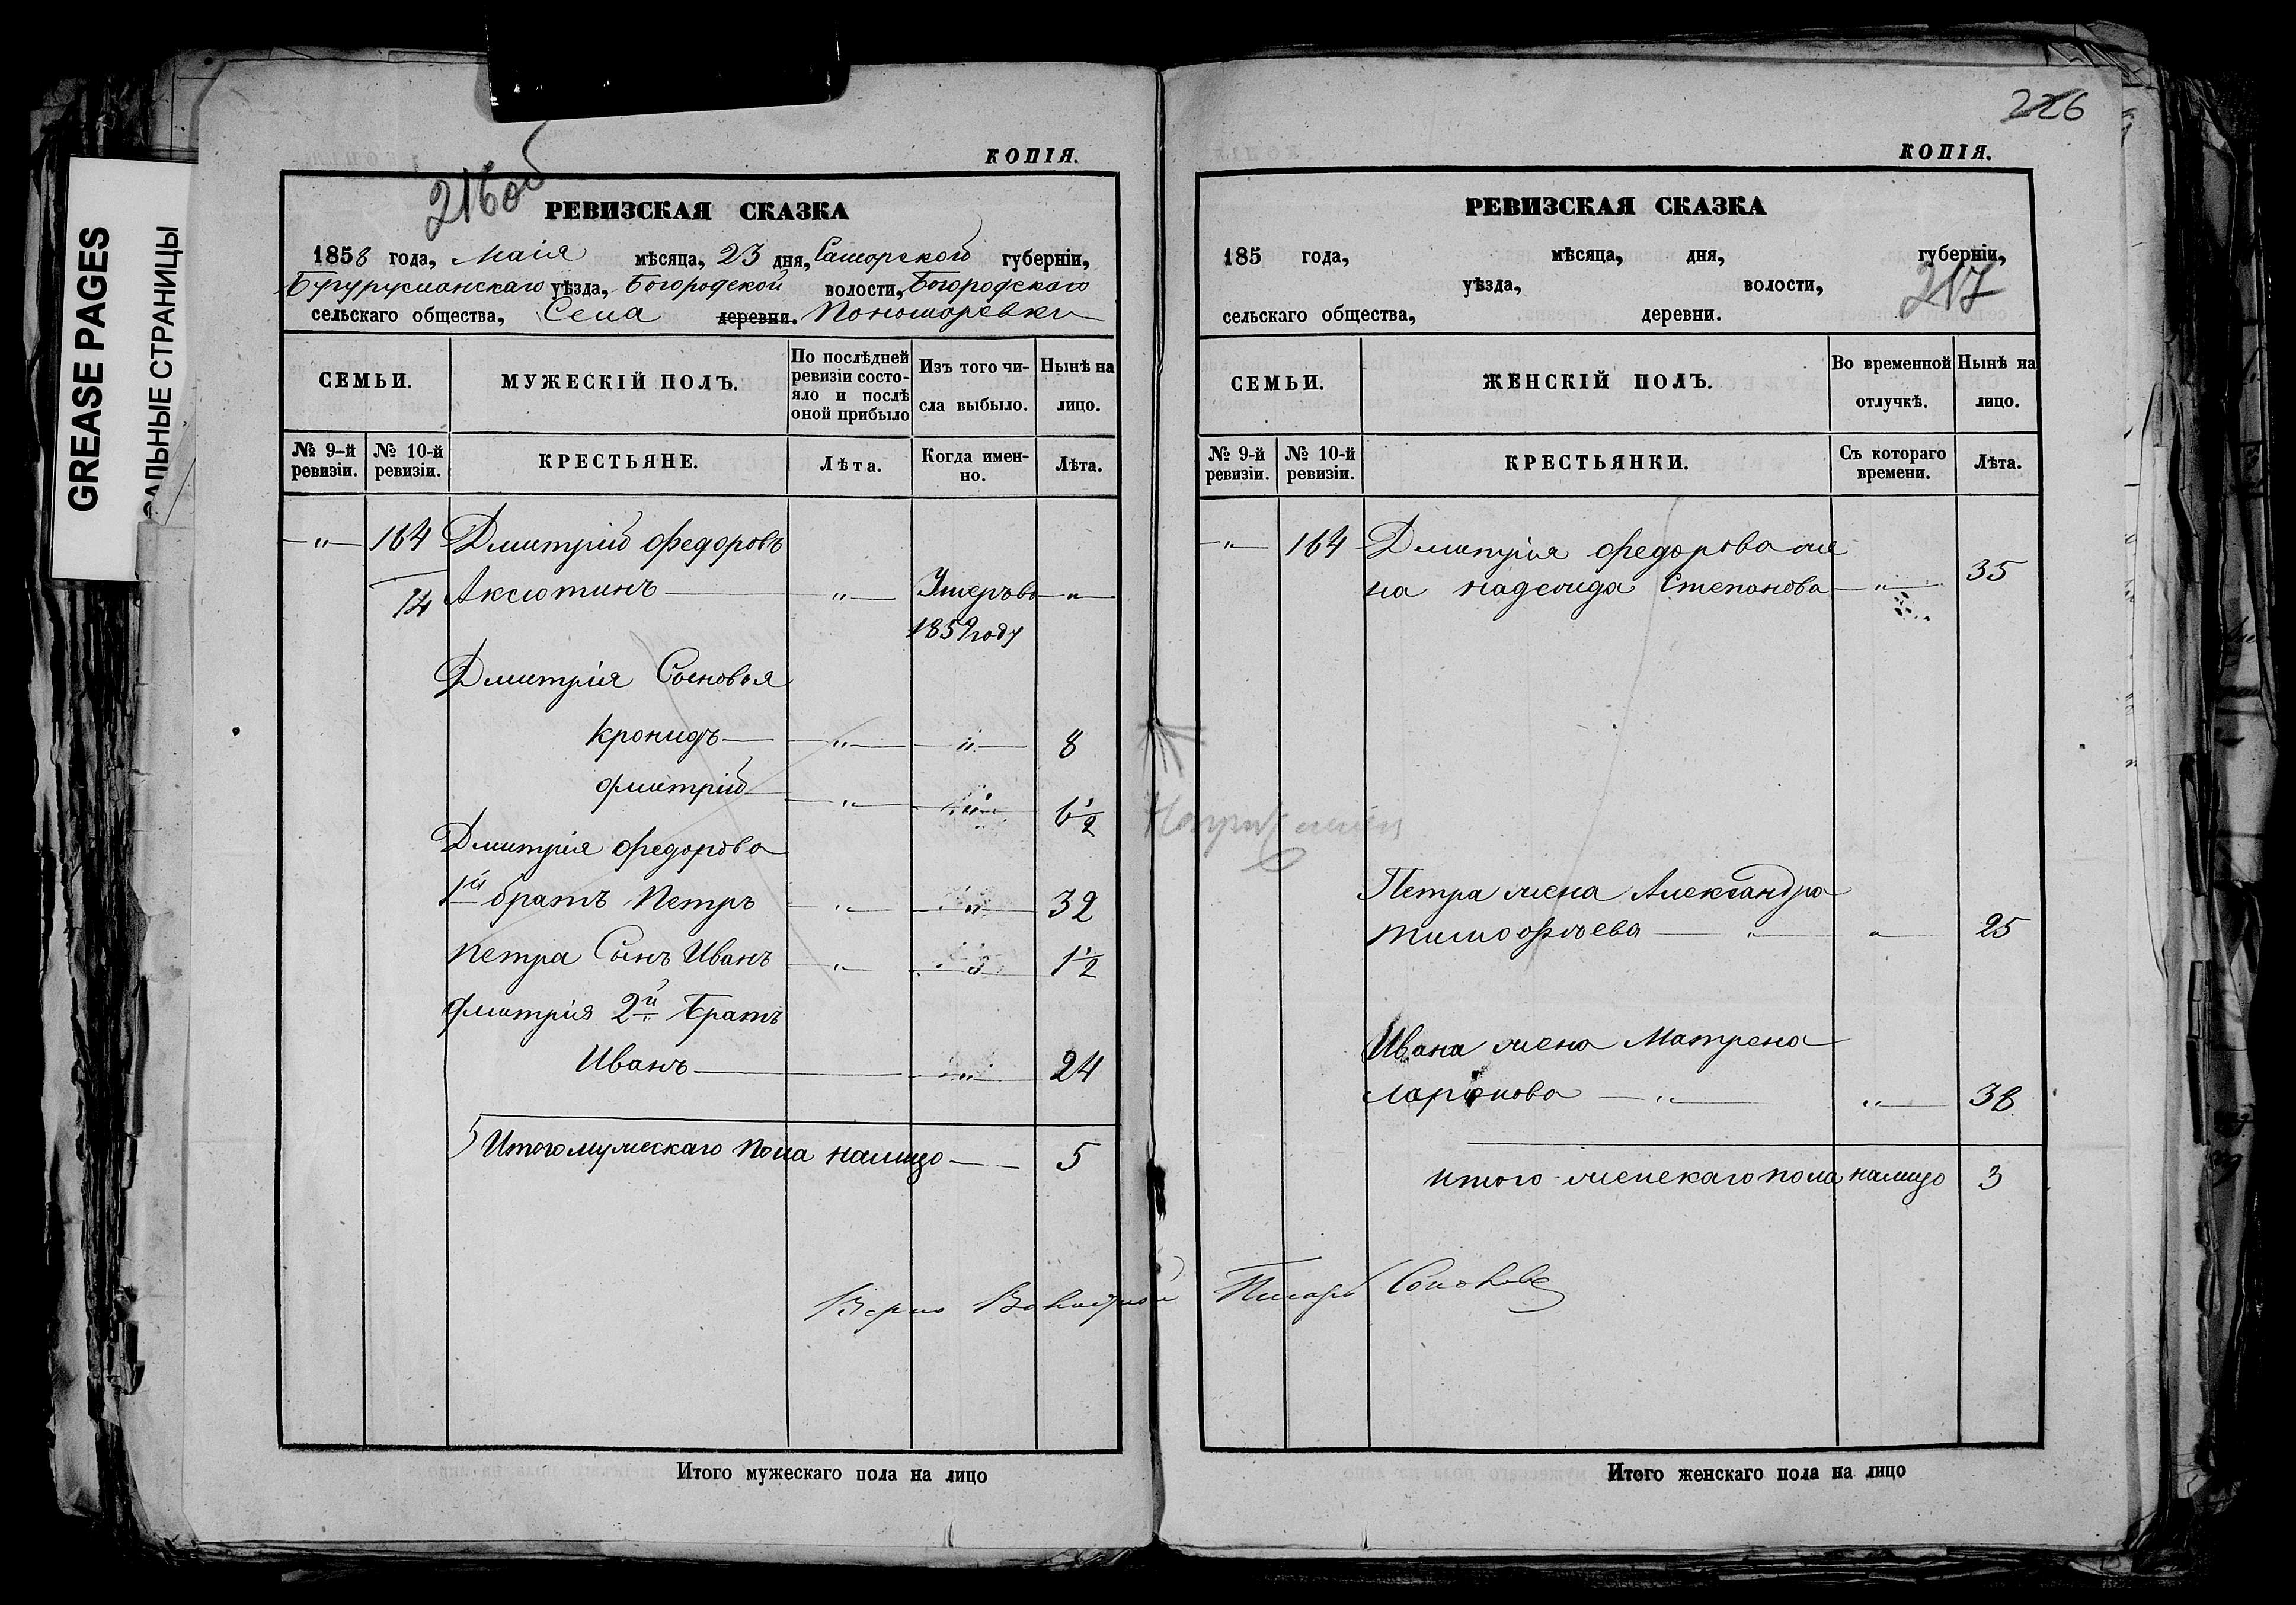 GREASE PAGES
САЛЬНЫЕ СТРАНИЦЫ
216об
КОПІЯ.
РЕВИЗСКАЯ СКАЗКА
1858 года, Маія мѣсяца, 23 дня, Самарской губерніи,
Бугурусланскаго уѣзда, Богородской волости, Богородскаго
сельскаго общества, Села деревни. Пономаревки
СЕМЬИ.
МУЖЕСКІЙ ПОЛЪ.
По послѣдней ревизіи состояло и послѣ оной прибыло
Изъ того числа выбыло.
Нынѣ на лицо.
№ 9-й ревизіи.
№ 10-й ревизіи.
КРЕСТЬЯНЕ.
Лѣта.
Когда именно.
Лѣта.
—"— 164 Дмитрій Федоровъ
14 Аксютинъ — " — Умеръ въ — " —
1859 году
Дмитрія Сыновья
Кронидъ — " — " — 8
Дмитрій — " — " — 6 1/2
Дмитрія Федорова
1й братъ Петръ — " — " — 32
Петра Сынъ Иванъ — " — " — 1 1/2
Дмитрія 2й Братъ
Иванъ — " — 24
5 Итого мужескаго пола налицо — 5
Верно Волостной
Итого мужескаго пола на лицо
226
КОПІЯ.
РЕВИЗСКАЯ СКАЗКА
185 года, мѣсяца, дня, губерніи,
217
уѣзда, волости,
сельскаго общества, деревни.
СЕМЬИ.
ЖЕНСКІЙ ПОЛЪ.
Во временной отлучкѣ.
Нынѣ на лицо.
№ 9-й ревизіи.
№ 10-й ревизіи.
КРЕСТЬЯНКИ.
Съ котораго времени.
Лѣта.
—"— 164 Дмитрія Федорова же
на Надежда Степанова — " — 35
Петра жена Александра
Тимофѣева — " — " — 25
Ивана жена Матрена
Ларіонова — " — " — 38
итого женскаго пола налицо 3
Писарь
Итого женскаго пола на лицо